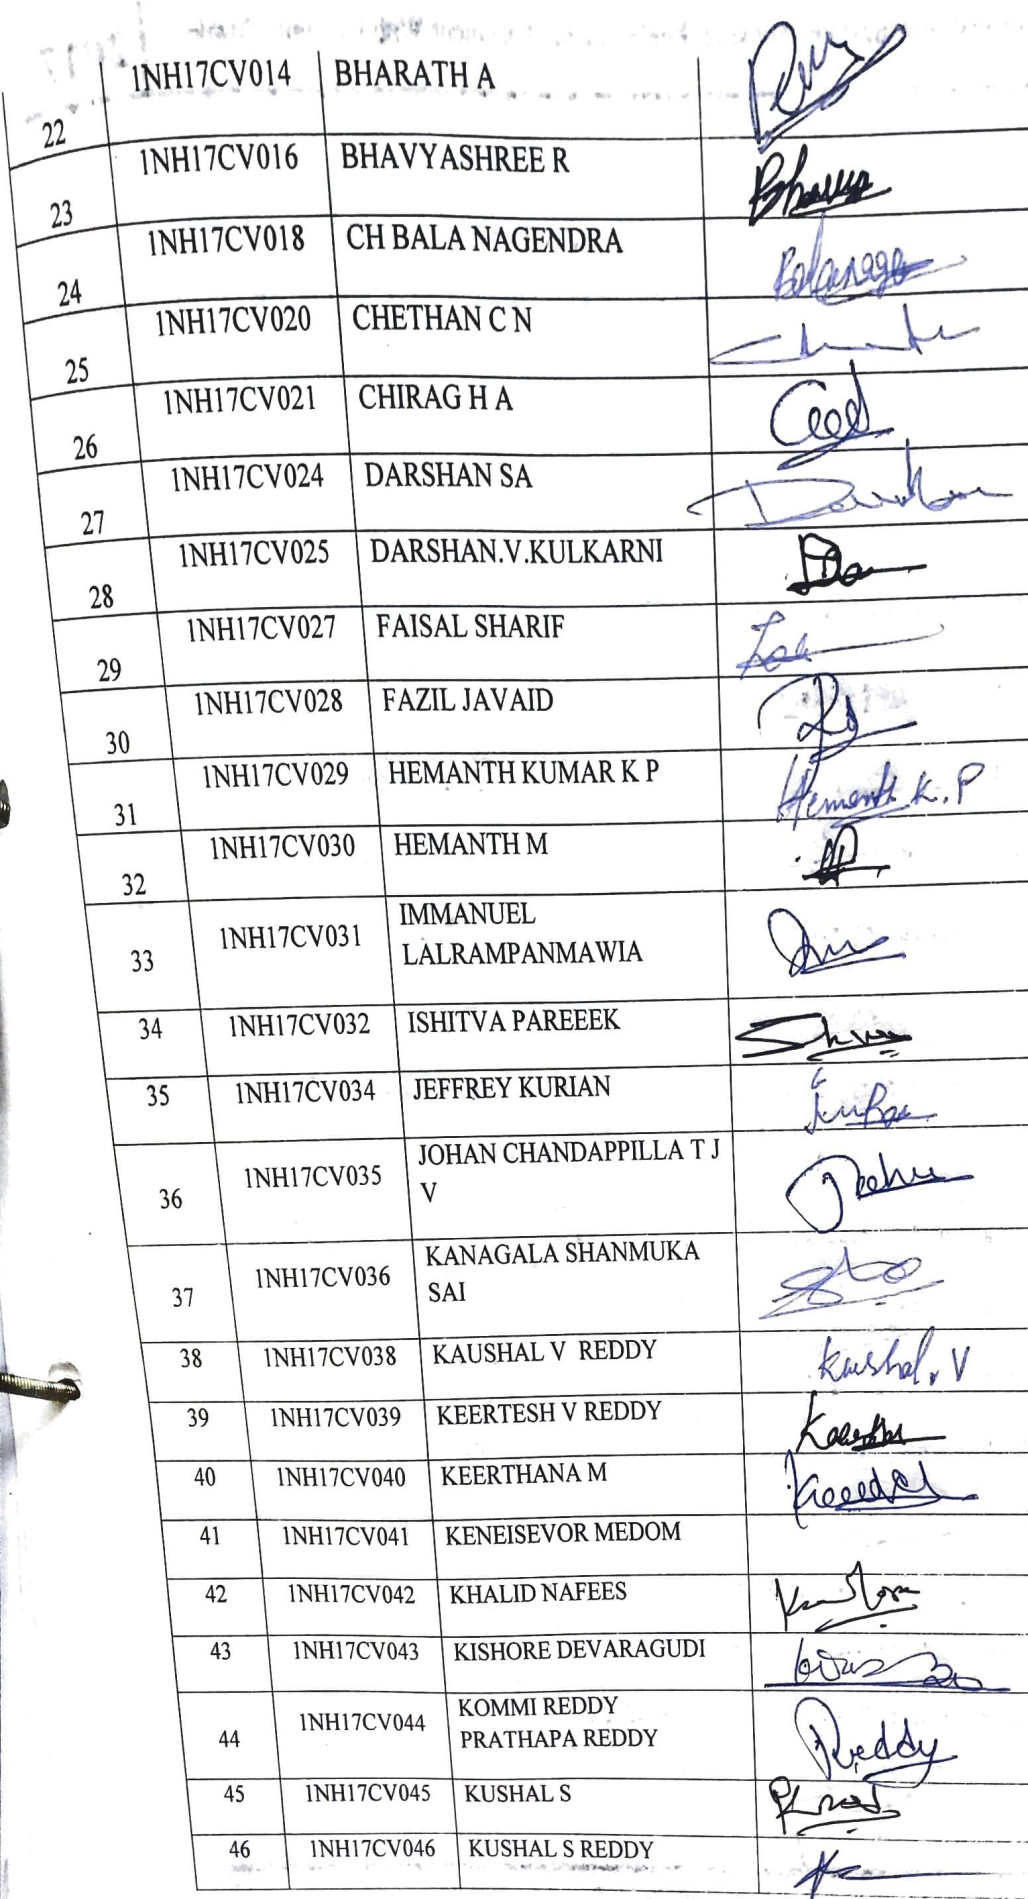 22 1NH17CV014 BHARATH A
23 1NH17CV016 BHAVYASHREE R
24 1NH17CV018 CH BALA NAGENDRA
25 1NH17CV020 CHETHAN C N
26 1NH17CV021 CHIRAG H A
27 1NH17CV024 DARSHAN SA
28 1NH17CV025 DARSHAN.V.KULKARNI
29 1NH17CV027 FAISAL SHARIF
30 1NH17CV028 FAZIL JAVAID
31 1NH17CV029 HEMANTH KUMAR K P Hemanth K.P
32 1NH17CV030 HEMANTH M
33 1NH17CV031 IMMANUEL
LALRAMPANMAWIA
34 1NH17CV032 ISHITVA PAREEEK
35 1NH17CV034 JEFFREY KURIAN
36 1NH17CV035 JOHAN CHANDAPPILLA T J
V
37 1NH17CV036 KANAGALA SHANMUKA
SAI
38 1NH17CV038 KAUSHAL V REDDY Kaushal.V
39 1NH17CV039 KEERTESH V REDDY
40 1NH17CV040 KEERTHANA M
41 1NH17CV041 KENEISEVOR MEDOM
42 1NH17CV042 KHALID NAFEES
43 1NH17CV043 KISHORE DEVARAGUDI
44 1NH17CV044 KOMMI REDDY
PRATHAPA REDDY Reddy
45 1NH17CV045 KUSHAL S
46 1NH17CV046 KUSHAL S REDDY